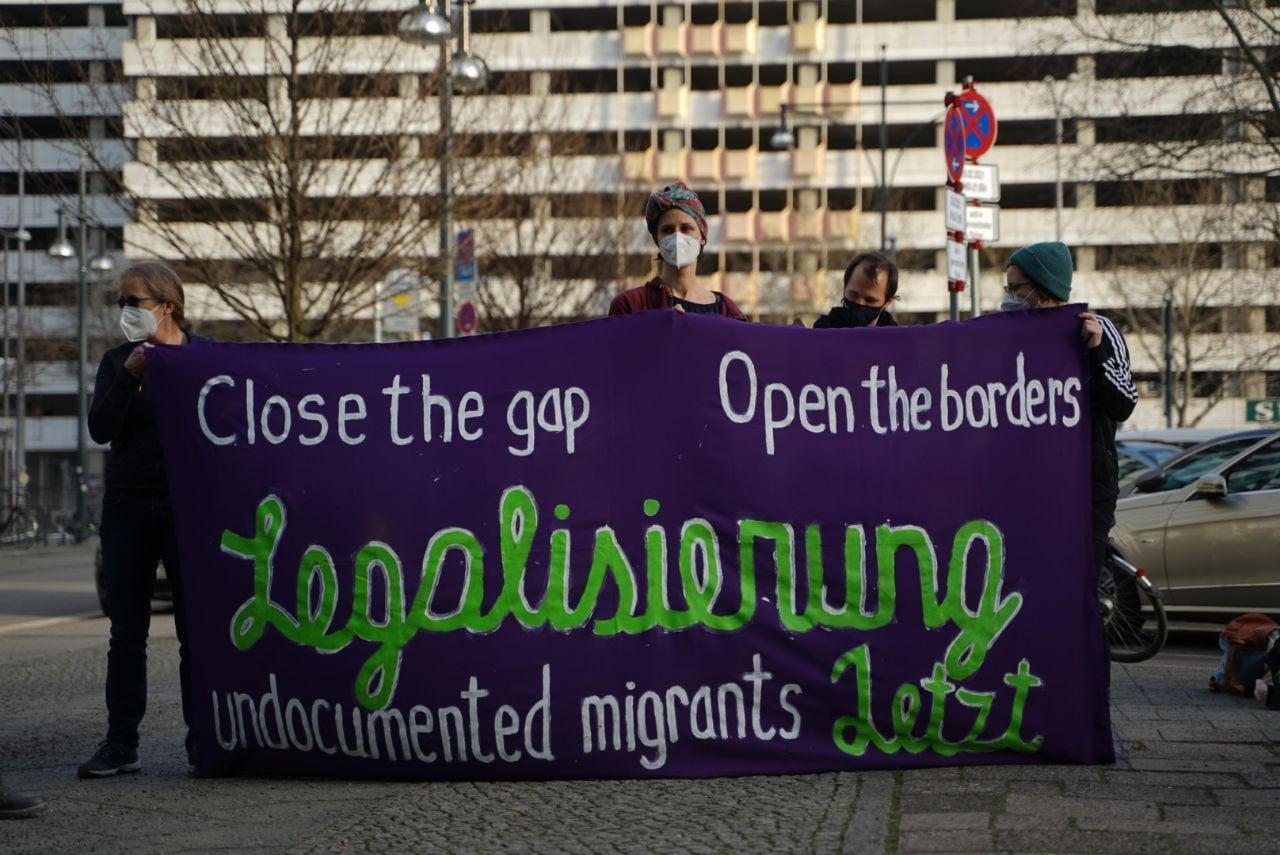 Close the gap
Open the borders
Legalisierung
undocumented migrants Jetzt